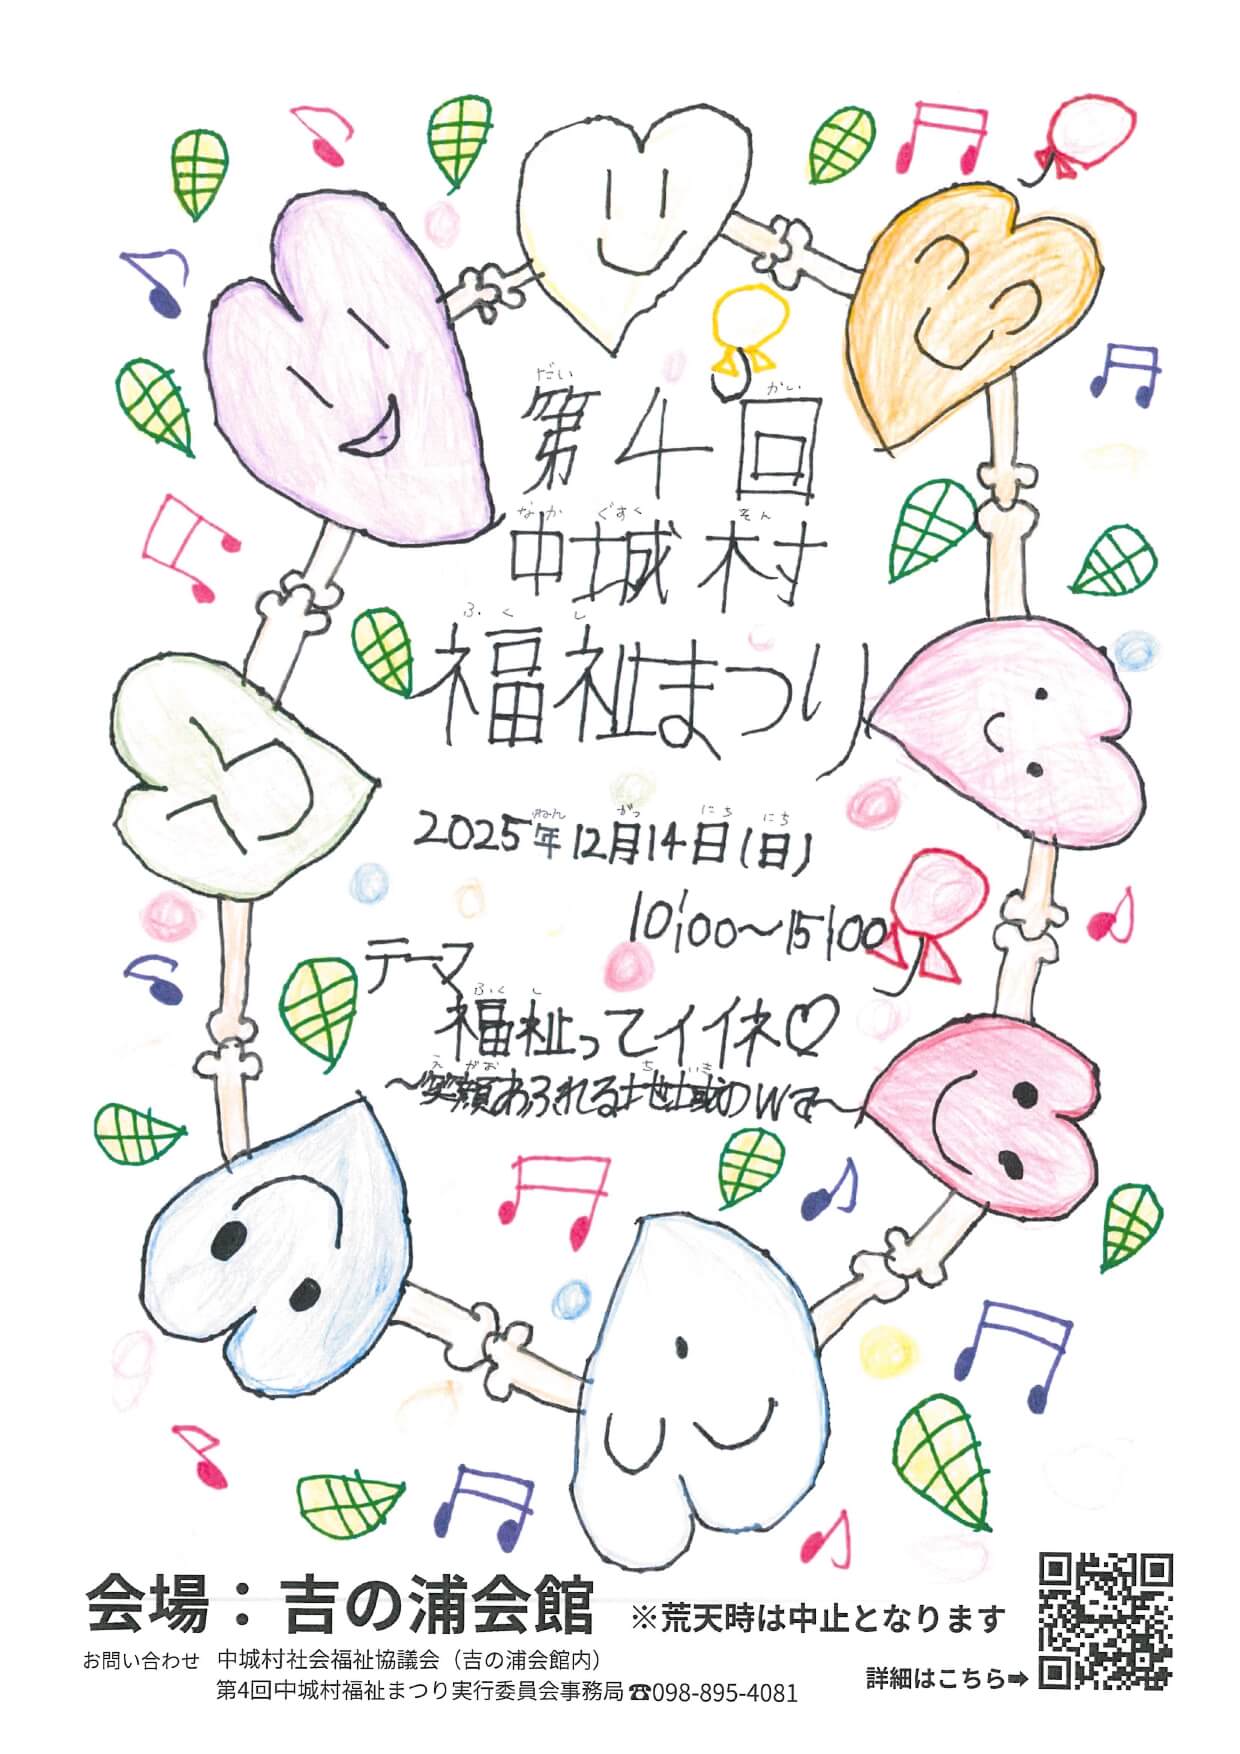 だい かい
第4回
なか ぐすく そん
中城村
ふく し
福祉まつり
ねん がつ にち にち
2025年12月14日(日)
10:00～15:00
テーマ
ふく し
福祉ってイイネ♡
え がお ち いき
～笑顔あふれる地域のWa～
会場：吉の浦会館
※荒天時は中止となります
お問い合わせ 中城村社会福祉協議会（吉の浦会館内）
第4回中城村福祉まつり実行委員会事務局☎098-895-4081
詳細はこちら➡